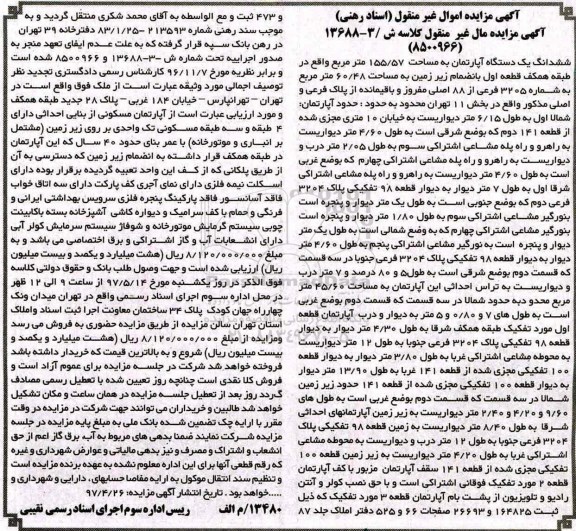 آگهی مزایده اموال غیر منقول (اسناد رهنی)
آگهی مزایده مال غیر منقول کلاسه ش /۳-۱۳۶۸۸
(۸۵۰۰۹۶۶)
ششدانگ یک دستگاه آپارتمان به مساحت ۱۵۵/۵۷ متر مربع واقع در
طبقه همکف قطعه اول بانضمام زیر زمین به مساحت ۶۰/۴۸ متر مربع
به شماره ۳۲۰۵ فرعی از ۸۸ اصلی مفروز و باقیمانده از پلاک فرعی و
اصلی مذکور واقع در بخش ۱۱ تهران محدود به حدود : حدود آپارتمان:
شمالا اول به طول ۶/۱۵ متر دیواریست به خیابان ۱۰ متری مجزی شده
از قطعه ۱۴۱ دوم که بوضع شرقی است به طول ۴/۶۰ متر دیواریست
به راهرو و راه پله مشاعی اشتراکی سوم به طول ۲/۰۵ متر درب و
دیواریست به راهرو و راه پله مشاعی اشتراکی چهارم که بوضع غربی
است به طول ۴/۶۰ متر دیواریست به راهرو و راه پله مشاعی اشتراکی
شرقا اول به طول ۷ متر دیوار به دیوار قطعه ۹۸ تفکیکی پلاک ۳۲۰۴
فرعی دوم که بوضع جنوبی است به طول یک متر دیوار و پنجره است
بنورگیر مشاعی اشتراکی سوم به طول ۱/۸۰ متر دیوار و پنجره است
به نورگیر مشاعی اشتراکی چهارم که به وضع شمالی است به طول یک متر
دیوار و پنجره است به نورگیر مشاعی اشتراکی پنجم به طول ۴/۶۰ متر
به قطعه ۹۸ تفکیکی پلاک ۳۲۰۴ فرعی جنوبا در سه قسمت
که قسمت دوم بوضع شرقی است به طول ۵ و ۸۰ درصد و ۷ متر درب
و دیواریست به تراس احداثی این آپارتمان به مساحت ۴۵/۶۰ متر
مربع محدو دبه حدود شمالا در سه قسمت که قسمت دوم بوضع غربی
است به طول های ۷ و ۰/۸۰ و ۵ متر به دیوار و درب آپارتمان قطعه
اول مورد تفکیک طبقه همکف شرقا به طول ۴/۳۰ متر دیوار به دیوار
قطعه ۹۸ تفکیکی پلاک ۳۲۰۴ فرعی جنوبا به طول ۱۲ متر دیواریست
به محوطه مشاعی اشتراکی غربا به طول ۳/۸۰ متر دیوار به دیوار قطعه
۱۰۰ تفکیکی مجزی شده از قطعه ۱۴۱ غربا به طول ۱۳/۹۰ متر دیوار
به دیوار قطعه ۱۰۰ تفکیکی مجزی شده از قطعه ۱۴۱ حدود زیر زمین
شمالا در سه قسمت که قسمت دوم بوضع غربی است به طول های
۹/۶۰ و ۴/۲۰ و ۲/۴۰ متر دیواریست به زیر زمین آپارتمانهای احداثی
شرقا به طول ۸/۴۰ متر دیواریست به زمین قطعه ۹۸ تفکیکی پلاک
۳۲۰۴ فرعی جنوبا به طول ۱۲ متر درب و دیواریست به محوطه مشاعی
اشتراکی غربا به طول ۴/۲۰ متر دیواریست به زیر زمین قطعه ۱۰۰
تفکیکی مجزی شده از قطعه ۱۴۱ سقف آپارتمان مزبور با کف آپارتمان
قطعه ۲ مورد تفکیک فوقانی اشتراکی است و با حق نصب کولر و آنتن
رادیو و تلویزیون از پشت بام آپارتمان قطعه ۳ مورد تفکیک که ذیل
ثبت ۱۶۴۸۲۵ و ۲۶۶۹۳ صفحات ۶۶ و ۵۲۵ دفتر املاک جلد ۸۷
و ۴۷۳ ثبت و مع الواسطه به آقای محمد شکری منتقل گردید و به
موجب سند رهنی شماره ۲۱۳۵۹۳ - ۸۳/۱/۲۵ دفترخانه ۳۹ تهران
در رهن بانک سپه قرار گرفته که به علت عدم ایفای تعهد منجر به
صدور اجراییه تحت شماره ش -۳-۱۳۶۸۸ و ۸۵۰۰۹۶۶ شده است
و برابر نظریه مورخ ۹۶/۱۱/۷ کارشناس رسمی دادگستری تجدید نظر
توصیف اجمالی مورد وثیقه عبارت است از ملک فوق واقع است در
تهران - تهرانپارس - خیابان ۱۸۴ غربی - پلاک ۲۸ جدید طبقه همکف
و مورد ارزیابی عبارت است از آپارتمان مسکونی از بنایی احداثی دارای
۴ طبقه و سه طبقه مسکونی تک واحدی بر روی زیر زمین (مشتمل
بر انباری و موتورخانه) با عمر بنای حدود ۴۰ سال که این آپارتمان
در طبقه همکف قرار داشته به انضمام زیر زمین که دسترسی به آن
از طریق پلکانی که از کف این واحد تعبیه گردیده برقرار بوده دارای
اسکلت نیمه فلزی دارای نمای آجری کف پارکت دارای سه اتاق خواب
فاقد آسانسور فاقد پارکینگ پنجره فلزی سرویس بهداشتی ایرانی و
فرنگی و حمام با کف سرامیک و دیواره کاشی آشپزخانه بسته باکابینت
چوبی سیستم گرمایش موتورخانه و شوفاژ سیستم سرمایش کولر آبی
دارای انشعابات آب و گاز اشتراکی و برق اختصاصی می باشد و به
مبلغ ۸/۱۲۰/۰۰۰/۰۰۰ ریال (هشت میلیارد و یکصد و بیست میلیون
ریال) ارزیابی شده است و جهت وصول طلب بانک و حقوق دولتی کلاسه
فوق الذکر در روز یکشنبه مورخ ۹۷/۵/۱۴ از ساعت ۹ الی ۱۲ ظهر
در محل اداره سوم اجرای اسناد رسمی واقع در تهران میدان ونک
چهارراه جهان کودک پلاک ۳۴ ساختمان معاونت اجرا ثبت اسناد واملاک
استان تهران سالن مزایده از طریق مزایده حضوری به فروش می رسد
ومزایده از مبلغ ۸/۱۲۰/۰۰۰/۰۰۰ ریال (هشت میلیارد و یکصد و
بیست میلیون ریال) شروع و به بالاترین قیمت که خریدار داشته باشد
فروخته خواهد شد شرکت در جلسه مزایده برای عموم آزاد است و
فروش کلا نقدی است چنانچه روز تعیین شده با تعطیل رسمی مصادف
گردد روز بعد از تعطیل جلسه مزایده در همان ساعت و مکان تشکیل
خواهد شد طالبین و خریداران می توانند جهت شرکت در مزایده در وقت
مقرر با ارایه چک تضمین شده بانک ملی به مبلغ پایه مزایده در جلسه
مزایده شرکت نمایند ضمنا بدهی های مربوط به آب، برق گاز اعم از حق
انشعاب و اشتراک و مصرف و نیز بدهی مالیاتی و عوارض شهرداری و غیره
که رقم قطعی آنها برای این اداره معلوم نشده به عهده برنده مزایده است
و تنظیم سند انتقال موکول به ارایه مفاصا حسابهای، دارایی و شهرداری و
.....خواهد بود . تاریخ انتشار آگهی مزایده: ۹۷/۴/۲۶
۱۳۴۸۰/م الف رییس اداره سوم اجرای اسناد رسمی نقیبی